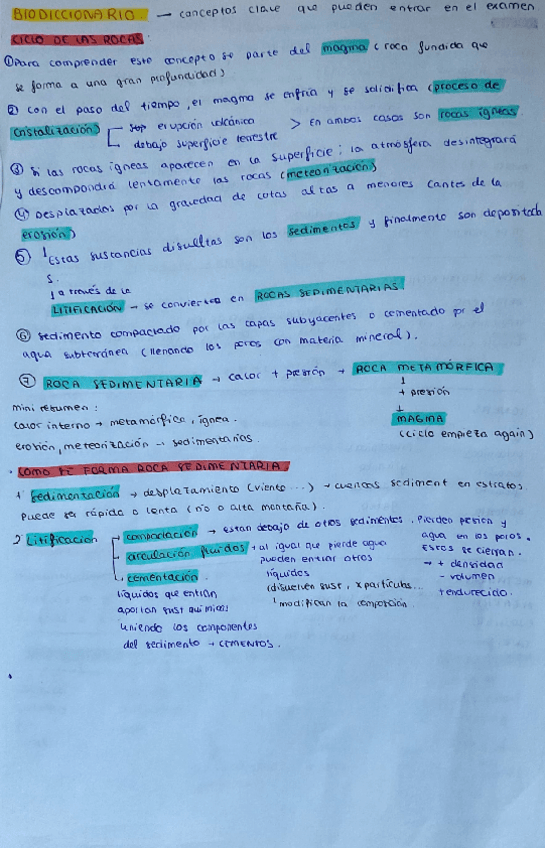 BIODICCIONARIO. → conceptos clave que pueden entrar en el examen.
CICLO DE LAS ROCAS:
① Para comprender este concepto se parte del magma (roca fundida que
se forma a una gran profundidad)
② Con el paso del tiempo, el magma se enfría y se solidifica (proceso de
cristalización)
erupción volcánica
debajo superficie terrestre
> En ambos casos son rocas ígneas.
③ Si las rocas ígneas aparecen en la superficie; la atmósfera desintegrará
y descompondrá lentamente las rocas (meteorización)
④ Desplazadas por la gravedad de cotas altas a menores (antes de la
erosión)
⑤ Estas sustancias disueltas son los sedimentos y finalmente son deposita
S.
↓ a través de la
LITIFICACIÓN → se convierten en ROCAS SEDIMENTARIAS.
⑥ Sedimento compactado por las capas subyacentes o cementado por el
agua subterránea (llenando los poros con materia mineral).
⑦ ROCA SEDIMENTARIA → calor + presión → ROCA METAMÓRFICA
↓
+ presión
↓
MAGMA
(ciclo empieza again)
mini resumen:
calor interno → metamórfica, ígnea.
erosión, meteorización → sedimentarias.
· COMO SE FORMA ROCA SEDIMENTARIA.
1 Sedimentación → desplazamiento (viento...) → cuencas sediment en estratos.
Puede ser rápida o lenta (río o alta montaña).
2 Litificación
compactación → están debajo de otros sedimentos. Pierden
agua en los poros.
Estos se cierran.
→ + densidad
- volumen
+ endurecido.
circulación fluidos → al igual que pierde agua
pueden entrar otros
líquidos
(disuelven sust, x partículas...
modifican la composición.
cementación.
líquidos que entran
aportan sust químicas
uniendo los componentes
del sedimento → CEMENTOS.